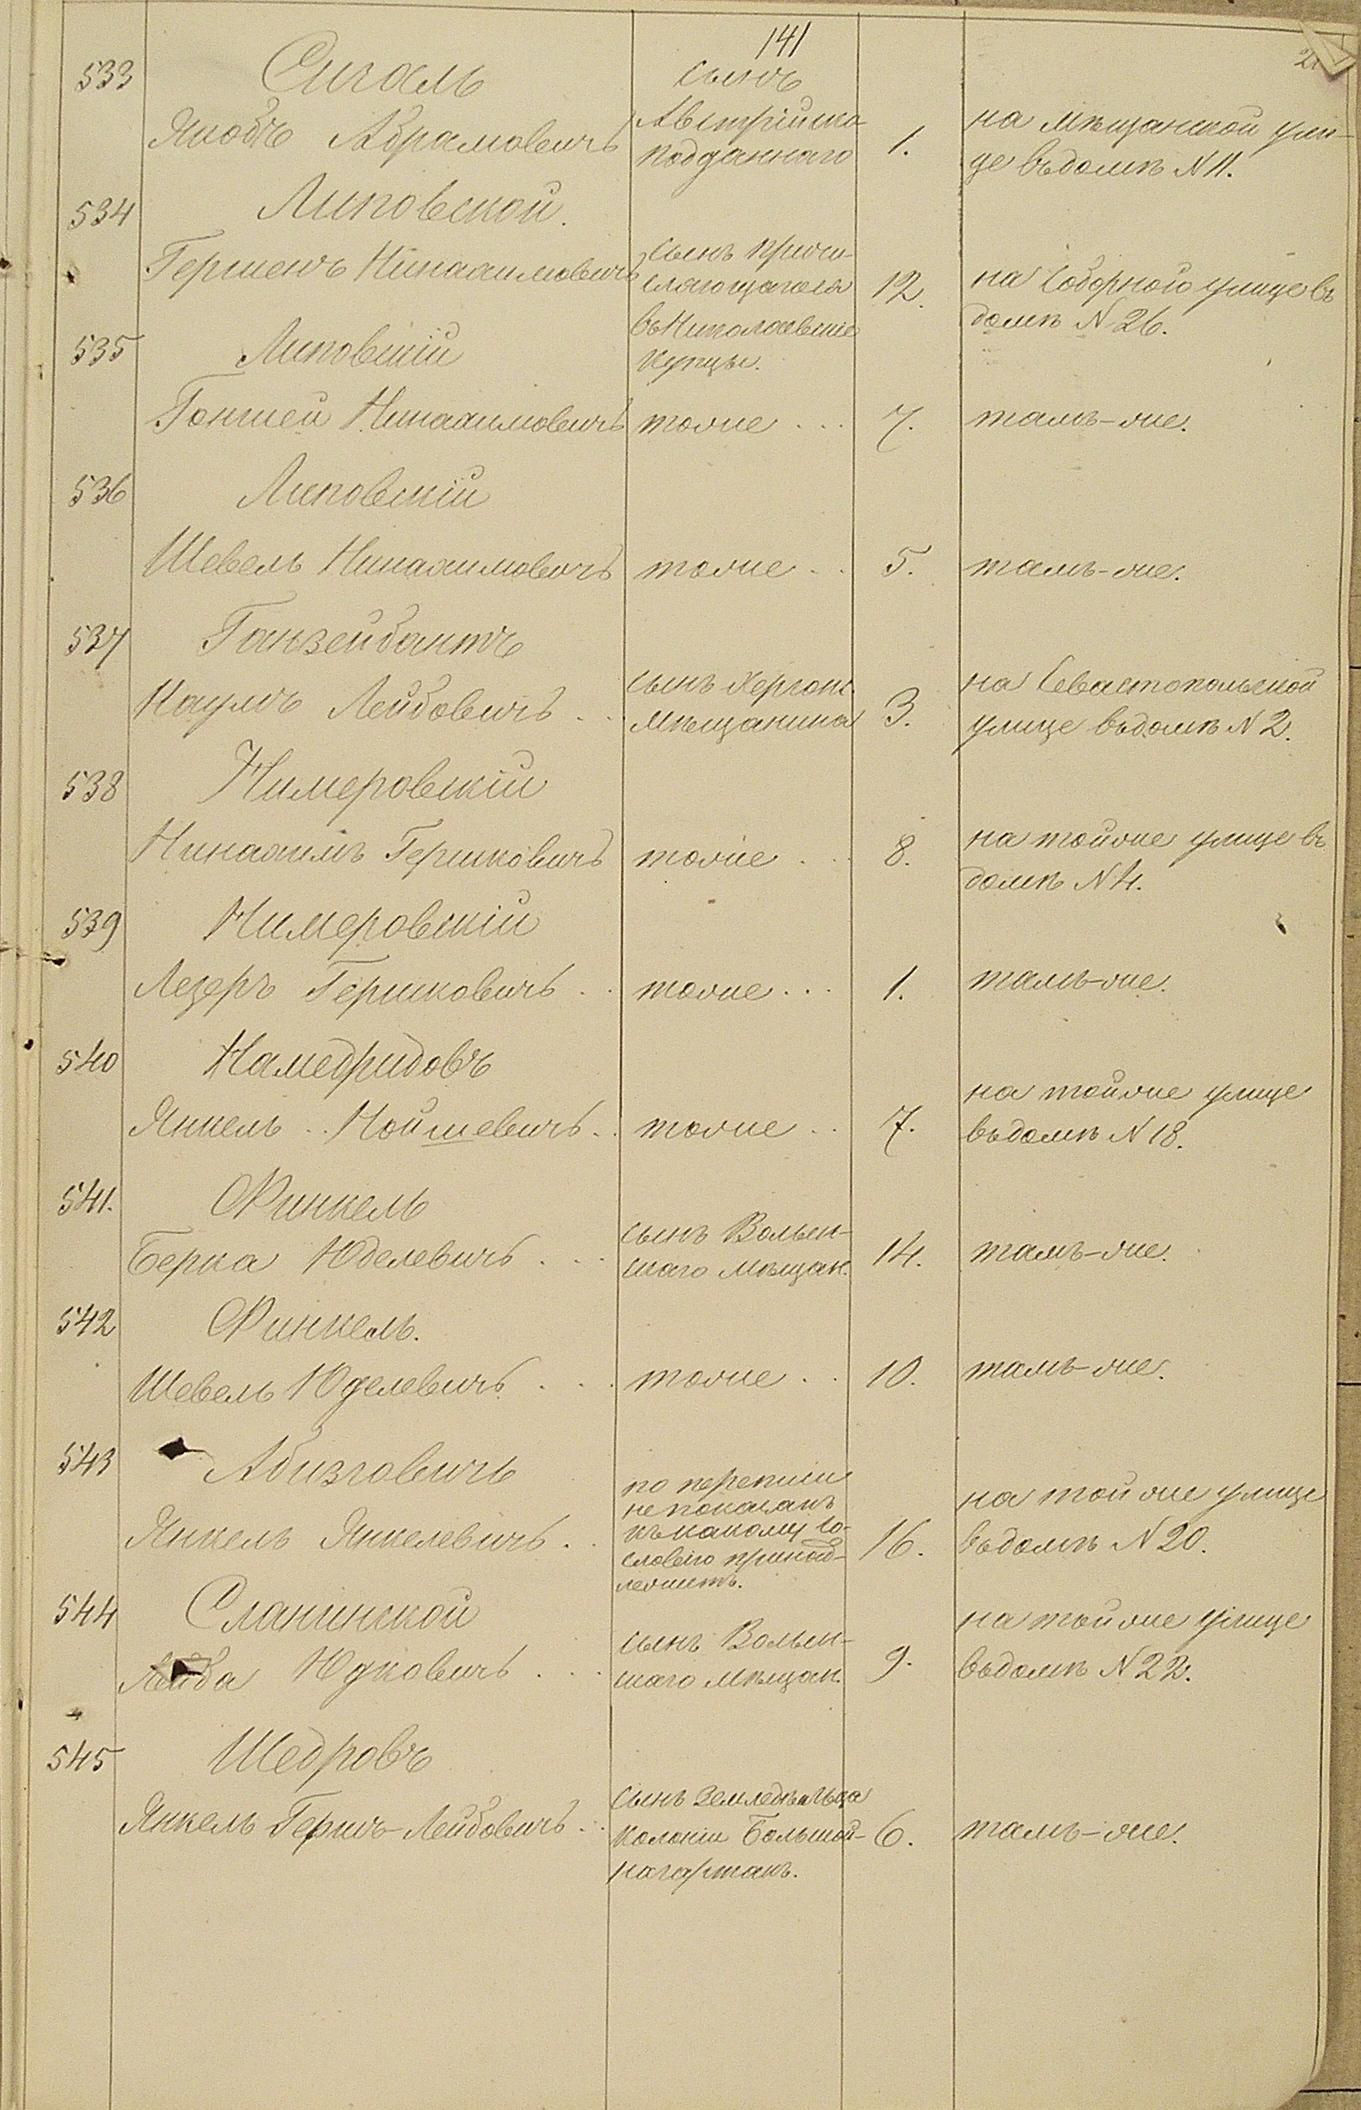 141
533 Сигаль
сынъ
Якобъ Абрамовичъ
Австрійско
подданнаго
1.
на Мѣщанской ули-
це въ домѣ N 11.
534 Липовской.
Гершенъ Нинахимовичъ
сынъ причи-
слягощагося
въ Николаевские
купцы.
12.
на Соборной улице въ
домѣ N 26.
535 Липовскій
Гоншей Нинахимовичъ тоже . . . 7. тамъ-же.
536 Липовскій
Шевель Нинахимовичъ тоже . . 5. тамъ-же.
537 Ганзейбантъ
Наумъ Лейбовичъ . .
сынъ Херсонс.
мѣщанина
3.
на Севастопольской
улице въ домѣ N 2.
538 Нимеровскій
Нинахимъ Гершковичъ тоже . . . 8.
на той же улице въ
домѣ N 4.
539 Нимеровскій
Лезеръ Гершковичъ . . тоже . . . 1. тамъ-же.
540 Намедридовъ
Янкель . . Нойшевичъ . . тоже . . 7.
на той же улице
въ домѣ N 18.
541. Финкель
Берка Юделевичъ . . .
сынъ Волын-
скаго мѣщан.
14. тамъ-же.
542 Финкель.
Шевель Юделевичъ . . . тоже . . 10. тамъ-же.
543 Абизговичъ
Янкель Янкелевичъ . .
по переписи
не показанъ
къ какому со-
словію принад-
лежитъ.
16.
на той же улице
въ домѣ N 20.
544 Сланинской
Лейба Юдковичъ . . .
сынъ Волын-
скаго мѣщан.
9.
на той же улице
въ домѣ N 22.
545 Шедровъ
Янкель Гершъ-Лейбовичъ . .
сынъ земледѣльца
колоніи Большой-
нагартавъ.
6. тамъ-же.